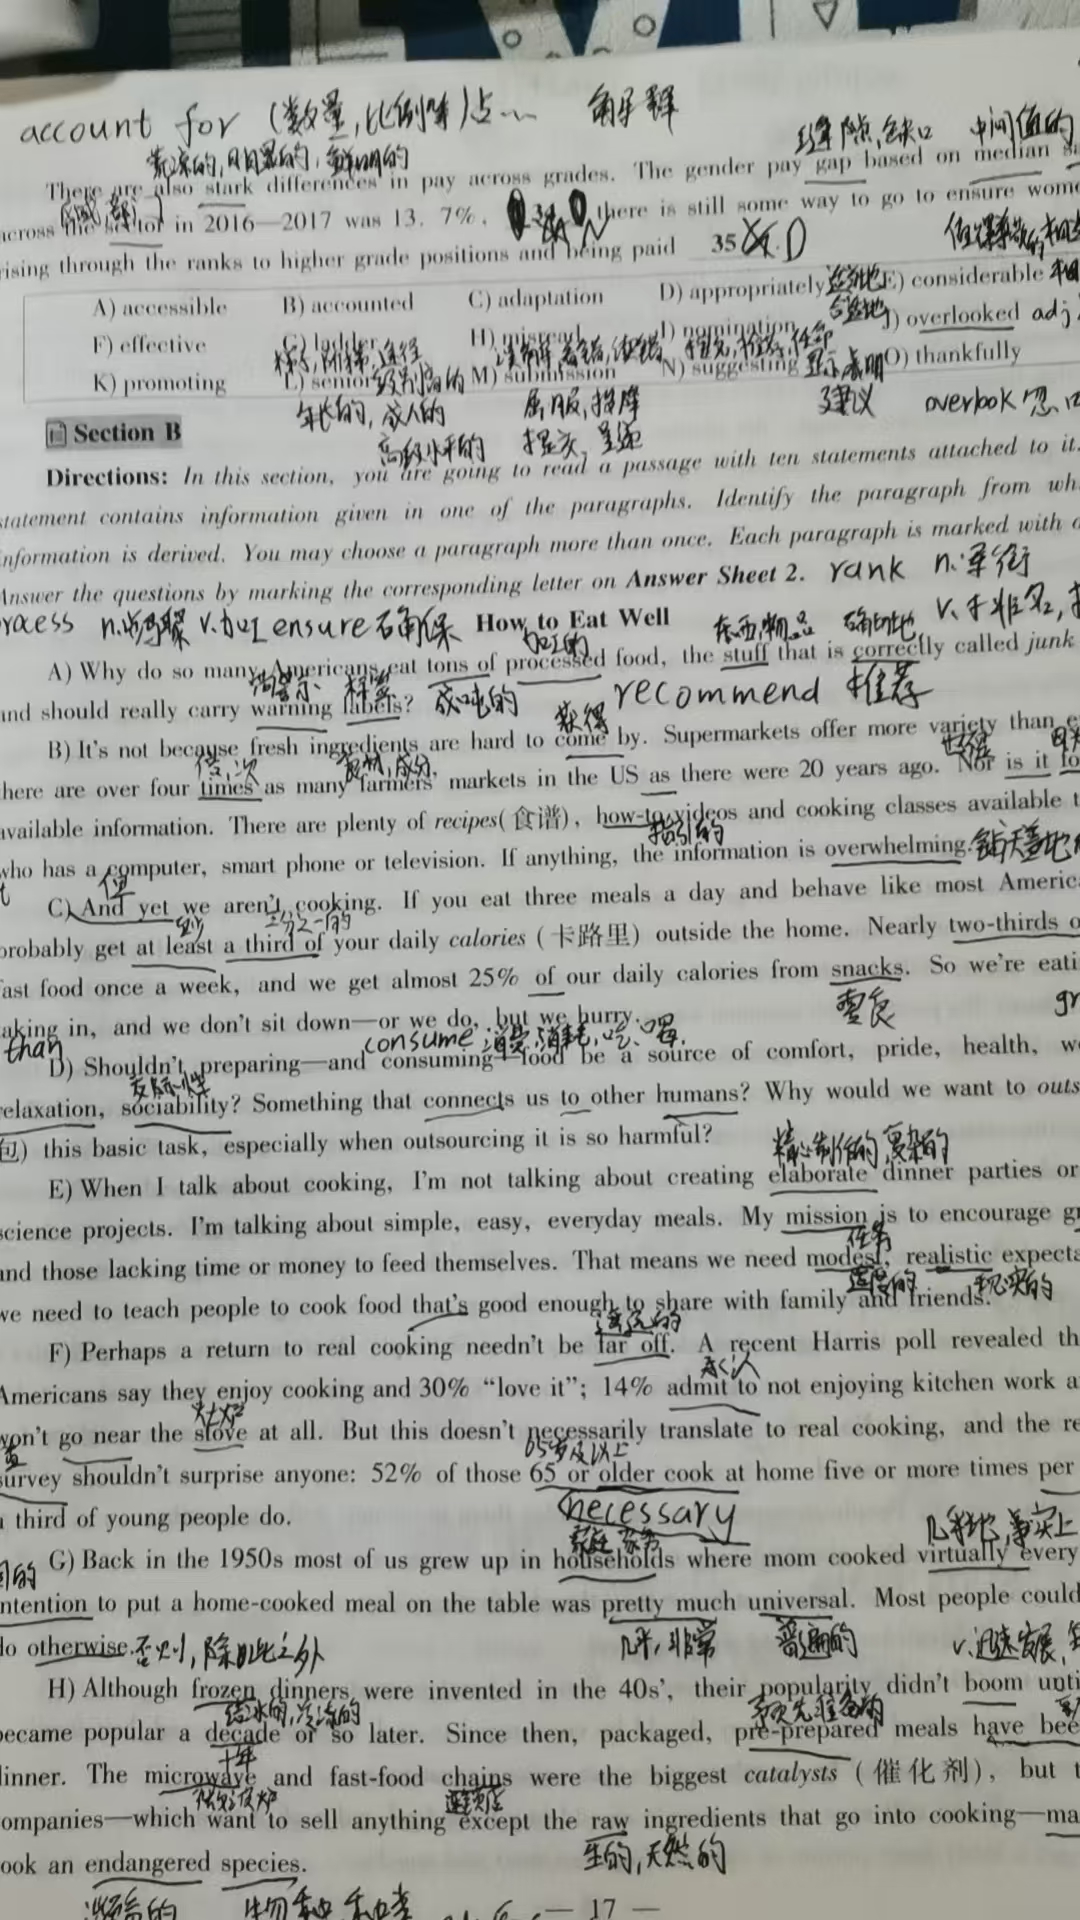 account for (数量,比例等)占… 解释
缝隙,缺口 中间值的
荒凉的,明显的,鲜明的
There are also stark differences in pay across grades. The gender pay gap based on median
across the sector in 2016—2017 was 13. 7%. there is still some way to go to ensure wome
rising through the ranks to higher grade positions and being paid 35 D
适当地
A) accessible B) accounted C) adaptation D) appropriately E) considerable
合适地
F) effective G) ladder H) misread I) nomination J) overlooked adj
梯子,阶梯,途径 提名,推荐,任命
K) promoting L) senior 级别高的 M) submission N) suggesting 显示,表明 O) thankfully
年长的,成人的 屈服,投降 建议 overlook 忽
高级水平的 提交,呈递
Section B
Directions: In this section, you are going to read a passage with ten statements attached to it.
statement contains information given in one of the paragraphs. Identify the paragraph from wh
information is derived. You may choose a paragraph more than once. Each paragraph is marked with a
Answer the questions by marking the corresponding letter on Answer Sheet 2. rank n.军衔
process n.步骤 v.加工 ensure 确保 How to Eat Well
加工的 东西,物品 确切地
A) Why do so many Americans eat tons of processed food, the stuff that is correctly called junk
警示 标签 成吨的 获得 recommend 推荐
and should really carry warning labels?
B) It's not because fresh ingredients are hard to come by. Supermarkets offer more variety than e
倍,次 食材,成分
there are over four times as many farmers' markets in the US as there were 20 years ago. Nor is it fo
available information. There are plenty of recipes(食谱), how-to videos and cooking classes available t
指引的
who has a computer, smart phone or television. If anything, the information is overwhelming. 铺天盖地
但
C) And yet we aren't cooking. If you eat three meals a day and behave like most America
至少 三分之一的
probably get at least a third of your daily calories (卡路里) outside the home. Nearly two-thirds o
fast food once a week, and we get almost 25% of our daily calories from snacks. So we're eati
零食
aking in, and we don't sit down—or we do, but we hurry.
than consume 消费,消耗,吃、喝
D) Shouldn't preparing—and consuming—food be a source of comfort, pride, health, we
交际性
relaxation, sociability? Something that connects us to other humans? Why would we want to outs
包) this basic task, especially when outsourcing it is so harmful?
精心制作的,复杂的
E) When I talk about cooking, I'm not talking about creating elaborate dinner parties or
science projects. I'm talking about simple, easy, everyday meals. My mission is to encourage g
任务
and those lacking time or money to feed themselves. That means we need modest, realistic expecta
适度的 现实的
we need to teach people to cook food that's good enough to share with family and friends.
遥远的
F) Perhaps a return to real cooking needn't be far off. A recent Harris poll revealed th
承认
Americans say they enjoy cooking and 30% “love it”; 14% admit to not enjoying kitchen work a
火炉
won't go near the stove at all. But this doesn't necessarily translate to real cooking, and the re
65岁及以上
survey shouldn't surprise anyone: 52% of those 65 or older cook at home five or more times per
a third of young people do.
necessary
家庭 几乎地,事实上
G) Back in the 1950s most of us grew up in households where mom cooked virtually every
intention to put a home-cooked meal on the table was pretty much universal. Most people could
do otherwise. 否则,除此之外 几乎,非常 普遍的 v.迅速发展
H) Although frozen dinners were invented in the 40s', their popularity didn't boom unti
结冰的,冷冻的 预先准备的
became popular a decade or so later. Since then, packaged, pre-prepared meals have bee
十年
dinner. The microwave and fast-food chains were the biggest catalysts (催化剂), but t
微波炉 连锁店
companies—which want to sell anything except the raw ingredients that go into cooking—ma
cook an endangered species. 生的,天然的
物种,种类
— 17 —